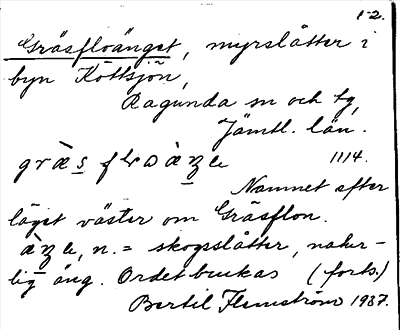 1-2.
Gräsfloänget, myrslåtter i
byn Köttsjön,
Ragunda sn och tg,
Jämtl. län.
1114.
Namnet efter
läget väster om Gräsflon.
n. = skogsslåtter, natur-
lig äng. Ordet brukas (forts.)
Bertil Flemström 1937.